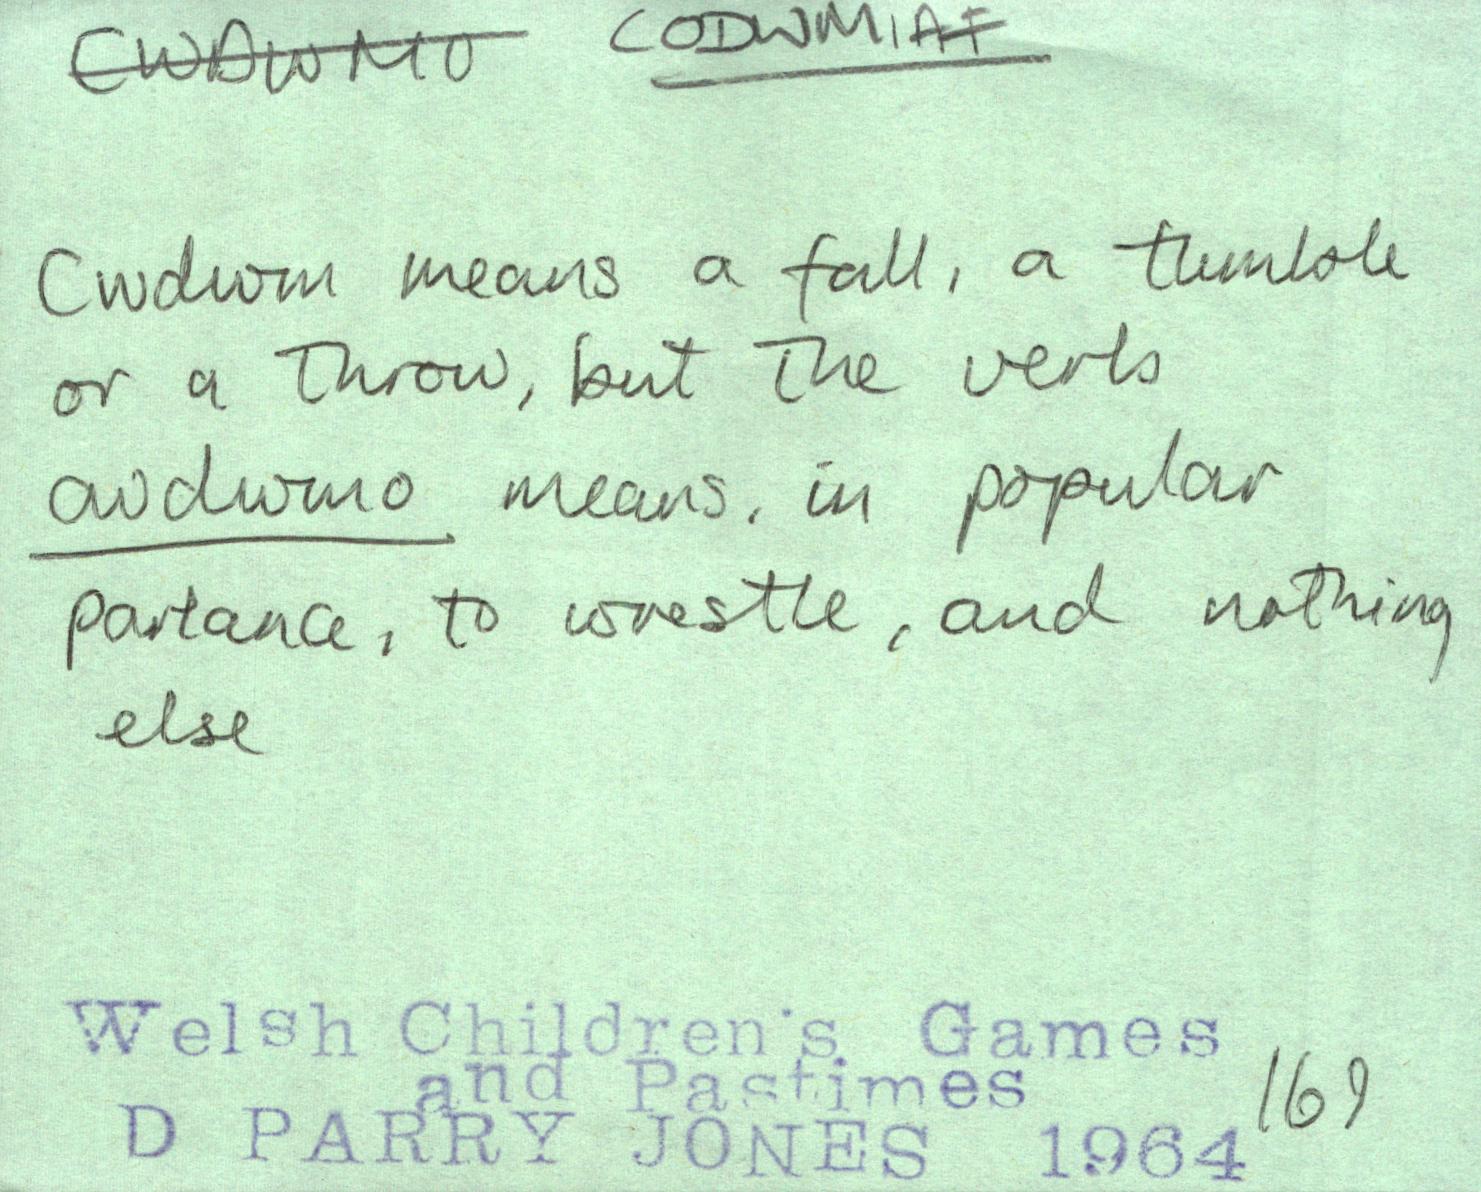 CWDWMO CODWMIAF
Cwdwm means a fall, a tumble
or a throw, but the verb
cwdwmo means, in popular
parlance, to wrestle, and nothing
else
Welsh Children's Games
and Pastimes
D PARRY JONES 1964 169